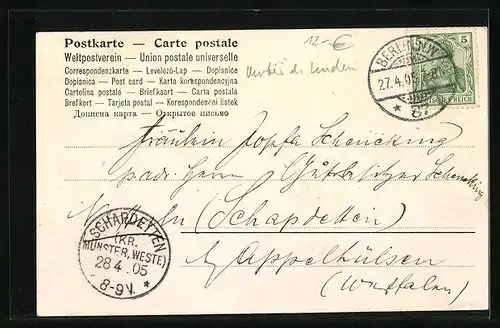 Postkarte — Carte postale
Weltpostverein — Union postale universelle
Correspondenzkarte — Levelező-Lap — Dopisnice
Dopisnica — Post card — Karta korespondencyjna
Cartolina postale — Briefkaart — Carta postala
Brefkort — Tarjeta postal — Korespondenční listek
Дописна карта — Открытое письмо
12.-€
BERLIN
27.4.05
5
REICH
Fräulein Schencking
Herrn Gutsbesitzer Schencking
(Schapdetten)
b/ Appelhülsen
(Westfalen)
SCHARDETTEN
(KR.
MÜNSTER, WESTF.)
28 4 05
8-9V.